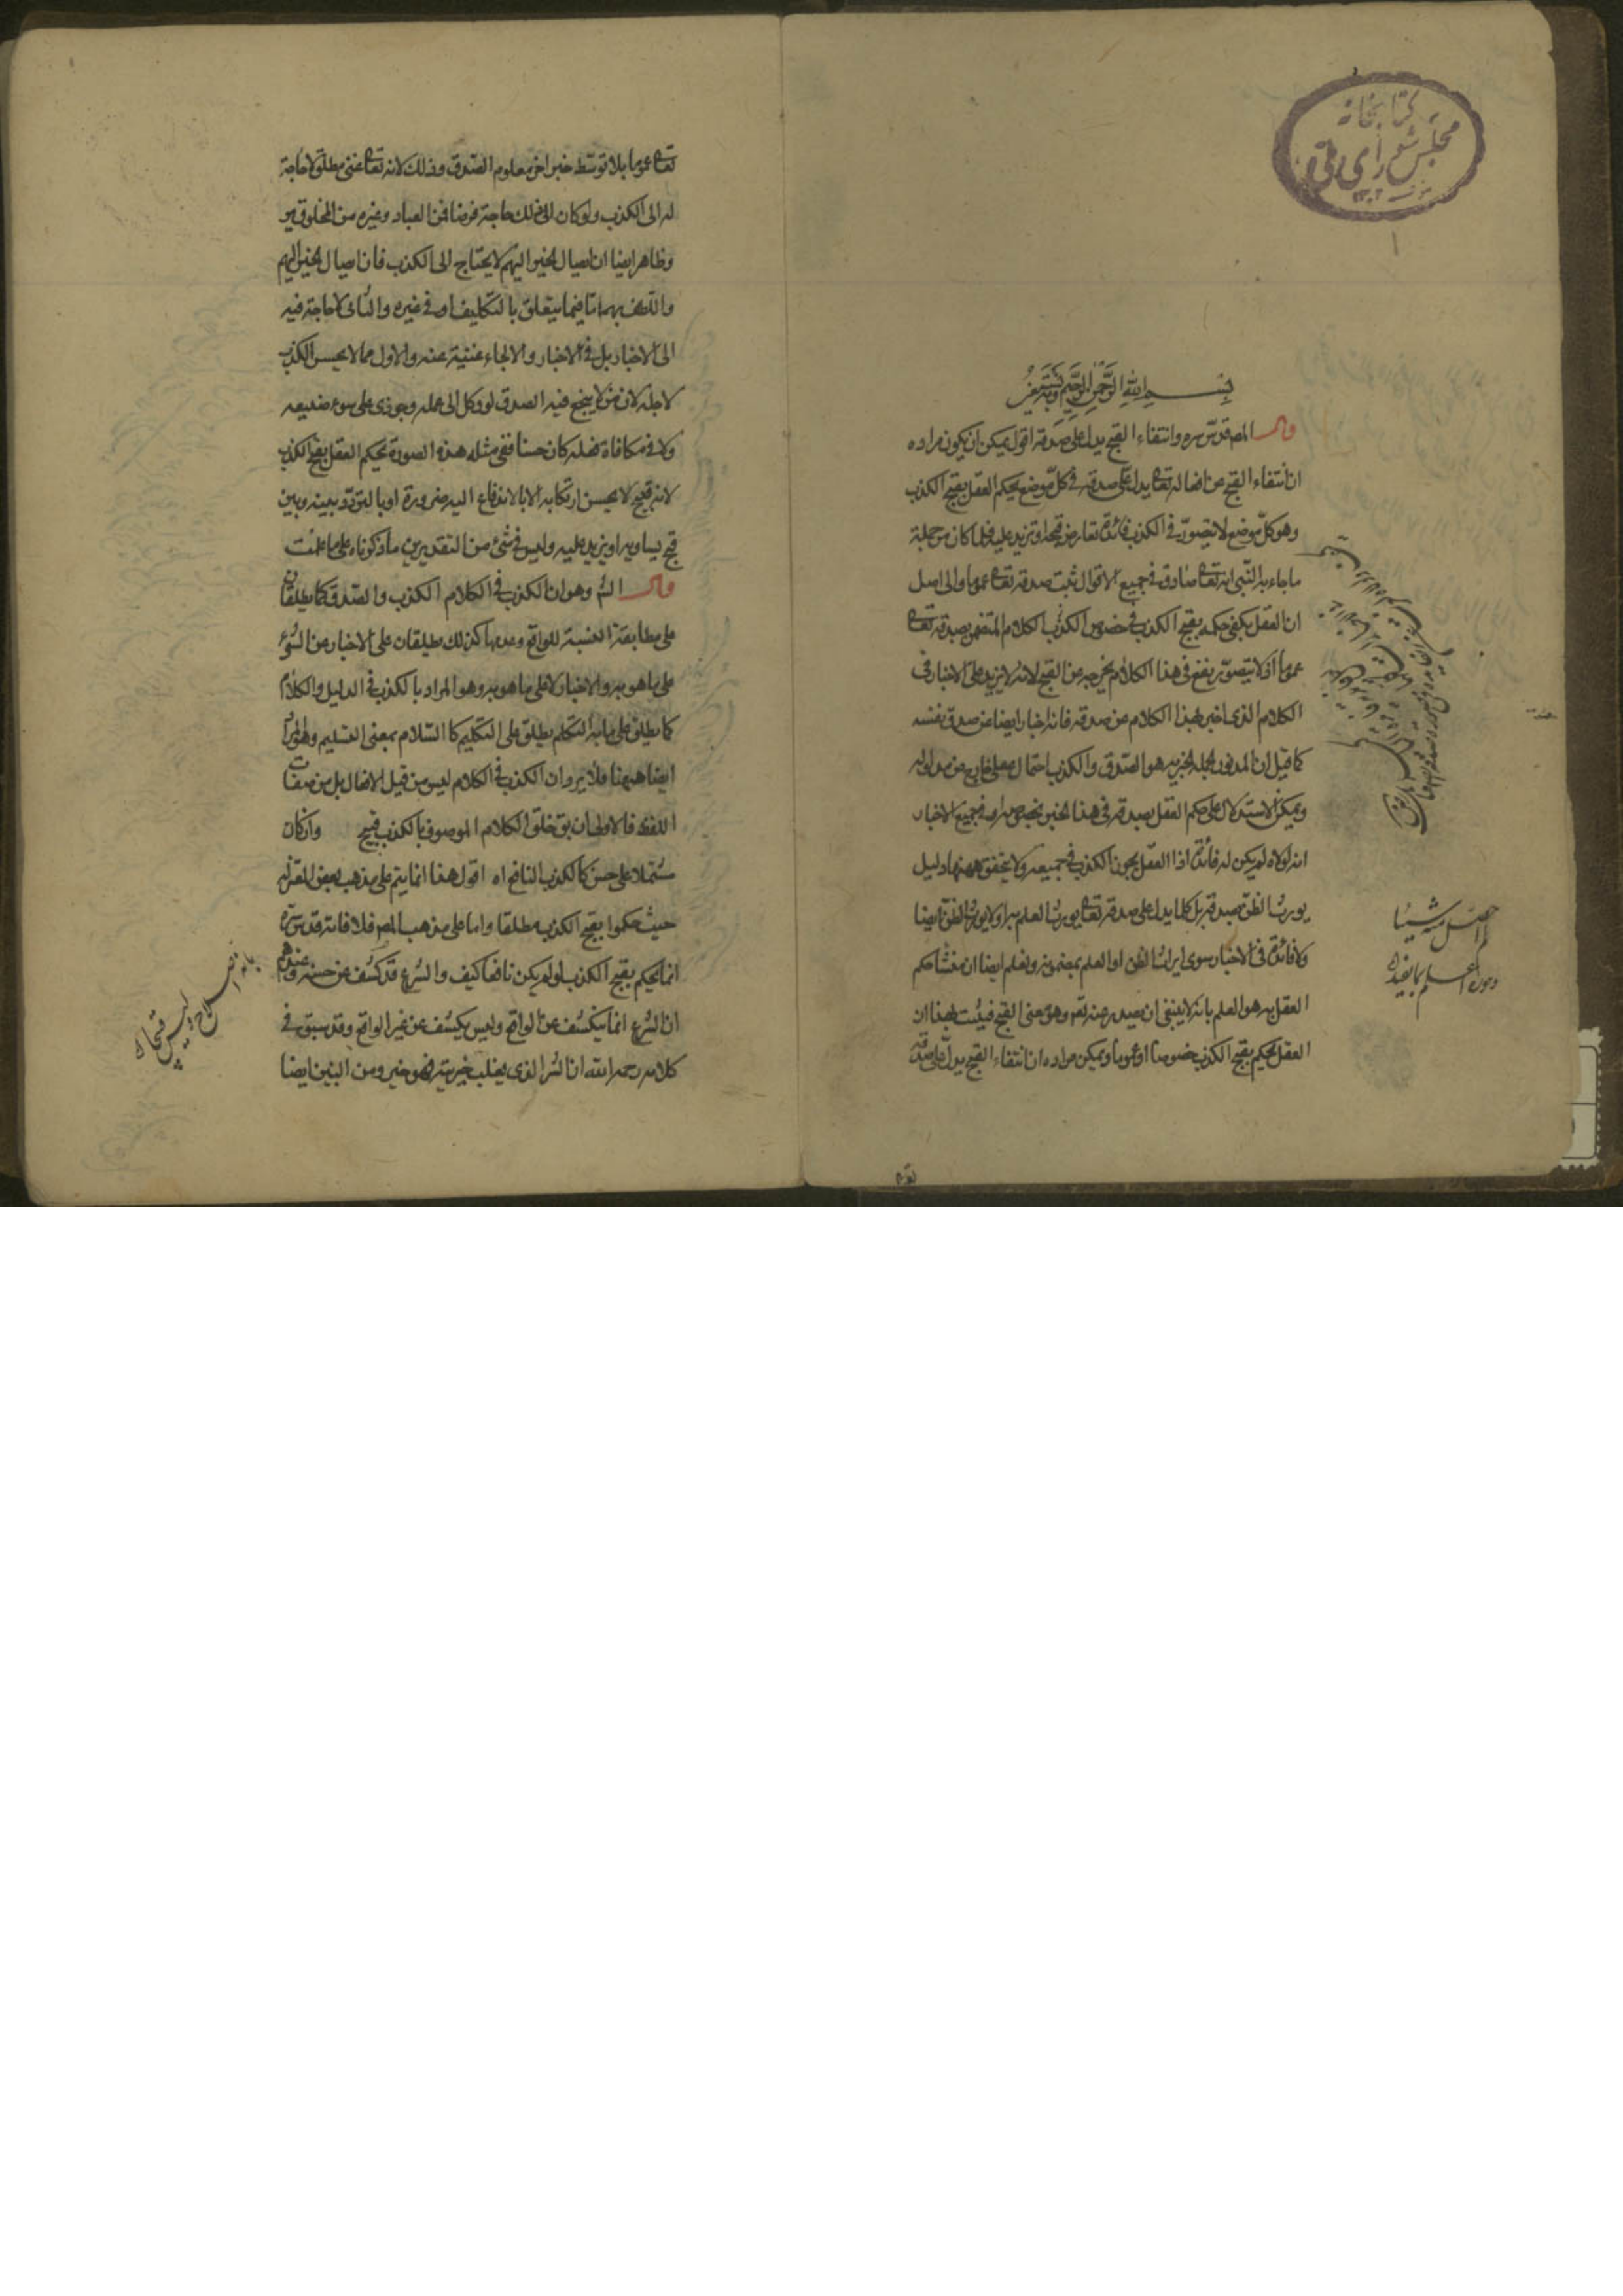 كتابخانه
مجلس شورای ملی
بسم الله الرحمن الرحيم وبه نستعين
قال المص قدس سره وانتفاء القبح يدل على صدقه اقول يمكن ان يكون مراده
ان انتفاء القبح عن افعاله تعالى يدل على صدقه في كل موضع يحكم العقل بقبح الكذب
وهو كل موضع لا يتصور في الكذب فائدة تعارض قبحه او تزيد عليه فلما كان من جملة
ما جاء به النبي انه تعالى صادق في جميع الاقوال ثبت صدقه تعالى عموما والى اصل
ان العقل يكفي حكمه بقبح الكذب في خصوص الكذب الكلام المتضمن بصدقه تعالى
عموما اذ لا يتصور نفع في هذا الكلام يخرجه عن القبح لانه لا يزيد على الاخبار في
الكلام الذي اخبر بهذا الكلام عن صدقه فانه اخبار ايضا عن صدق نفسه
كما قيل ان المدلول الجملة الخبرية هو الصدق والكذب احتمال عقلي خارج عن مدلوله
ويمكن الاستدلال على حكم العقل بصدقه في هذا الخبر بخصوصه او في جميع الاخبار
انه لولاه لم يكن له فائدة اذا العقل يجوز الكذب في جميعه ولا يتحقق ههنا دليل
يورث الظن بصدقه بل كلما يدل على صدقه تعالى يورث العلم به او لا يورث الظن ايضا
ولا فائدة في الاخبار سوى ايراث الظن او العلم بمضمونه ونعلم ايضا ان منشأ حكم
العقل به هو العلم بانه لا ينبغي ان يصدر عنه تعالى وهو معنى القبح فيثبت بهذا ان
العقل يحكم بقبح الكذب خصوصا او عموما ويمكن مراده ان انتفاء القبح يدل على صدقه
تعالى عموما بلا توسط خبر اخر معلوم الصدق وذلك لانه تعالى غني مطلق لا حاجة
له الى الكذب ولو كان لذلك حاجة فرضا فمن العباد وغيره من المخلوقين
وظاهر ايضا ان ايصال الخير اليهم لا يحتاج الى الكذب فان ايصال الخير اليهم
واللطف بهم اما فيما يتعلق بالتكليف او في غيره والثاني لا حاجة فيه
الى الاخبار بل في الاخبار والالجاء غنية عنه والاول مما لا يحسن الكذب
لاجله لان من لا ينجع فيه الصدق لو وكل الى عمله وجوزي على سوء صنيعه
ولا في مكافاة فعله كان حسنا ففي مثله هذه الصورة يحكم العقل بقبح الكذب
لانه قبيح لا يحسن ارتكابه الا بالاندفاع اليه ضرورة او بالتردد بينه وبين
قبح يساويه او يزيد عليه وليس في شيء من التقديرين ما ذكرناه على ما علمت
قال الش وهو ان الكذب في الكلام الكذب والصدق كما يطلقان
على مطابقة النسبة للواقع وعدمها كذلك يطلقان على الاخبار عن الشيء
على ما هو به والاخبار لا على ما هو به وهو المراد بالكذب في الدليل والكلام
كما يطلق على ما به التكلم يطلق على التكليم كالسلام بمعنى التسليم وهو المراد
ايضا ههنا فلا يرد ان الكذب في الكلام ليس من قبيل الافعال بل من صفات
اللفظ فالاولى ان يق خلق الكلام الموصوف بالكذب قبيح وان كان
مشتملا على حسن كالكذب النافع اه اقول هذا انما يتم على مذهب بعض المعتزلة
حيث حكموا بقبح الكذب مطلقا واما على مذهب المص فلا فانه قدس سره
انما يحكم بقبح الكذب لو لم يكن نافعا كيف والشرع قد كشف عن حسنه وعندهم
ان الشرع انما يكشف عن الواقع وليس يكشف عن غير الواقع وقد سبق في
كلامه رحمه الله ان الشر الذي يغلب خيريته فهو خير ومن البين ايضا